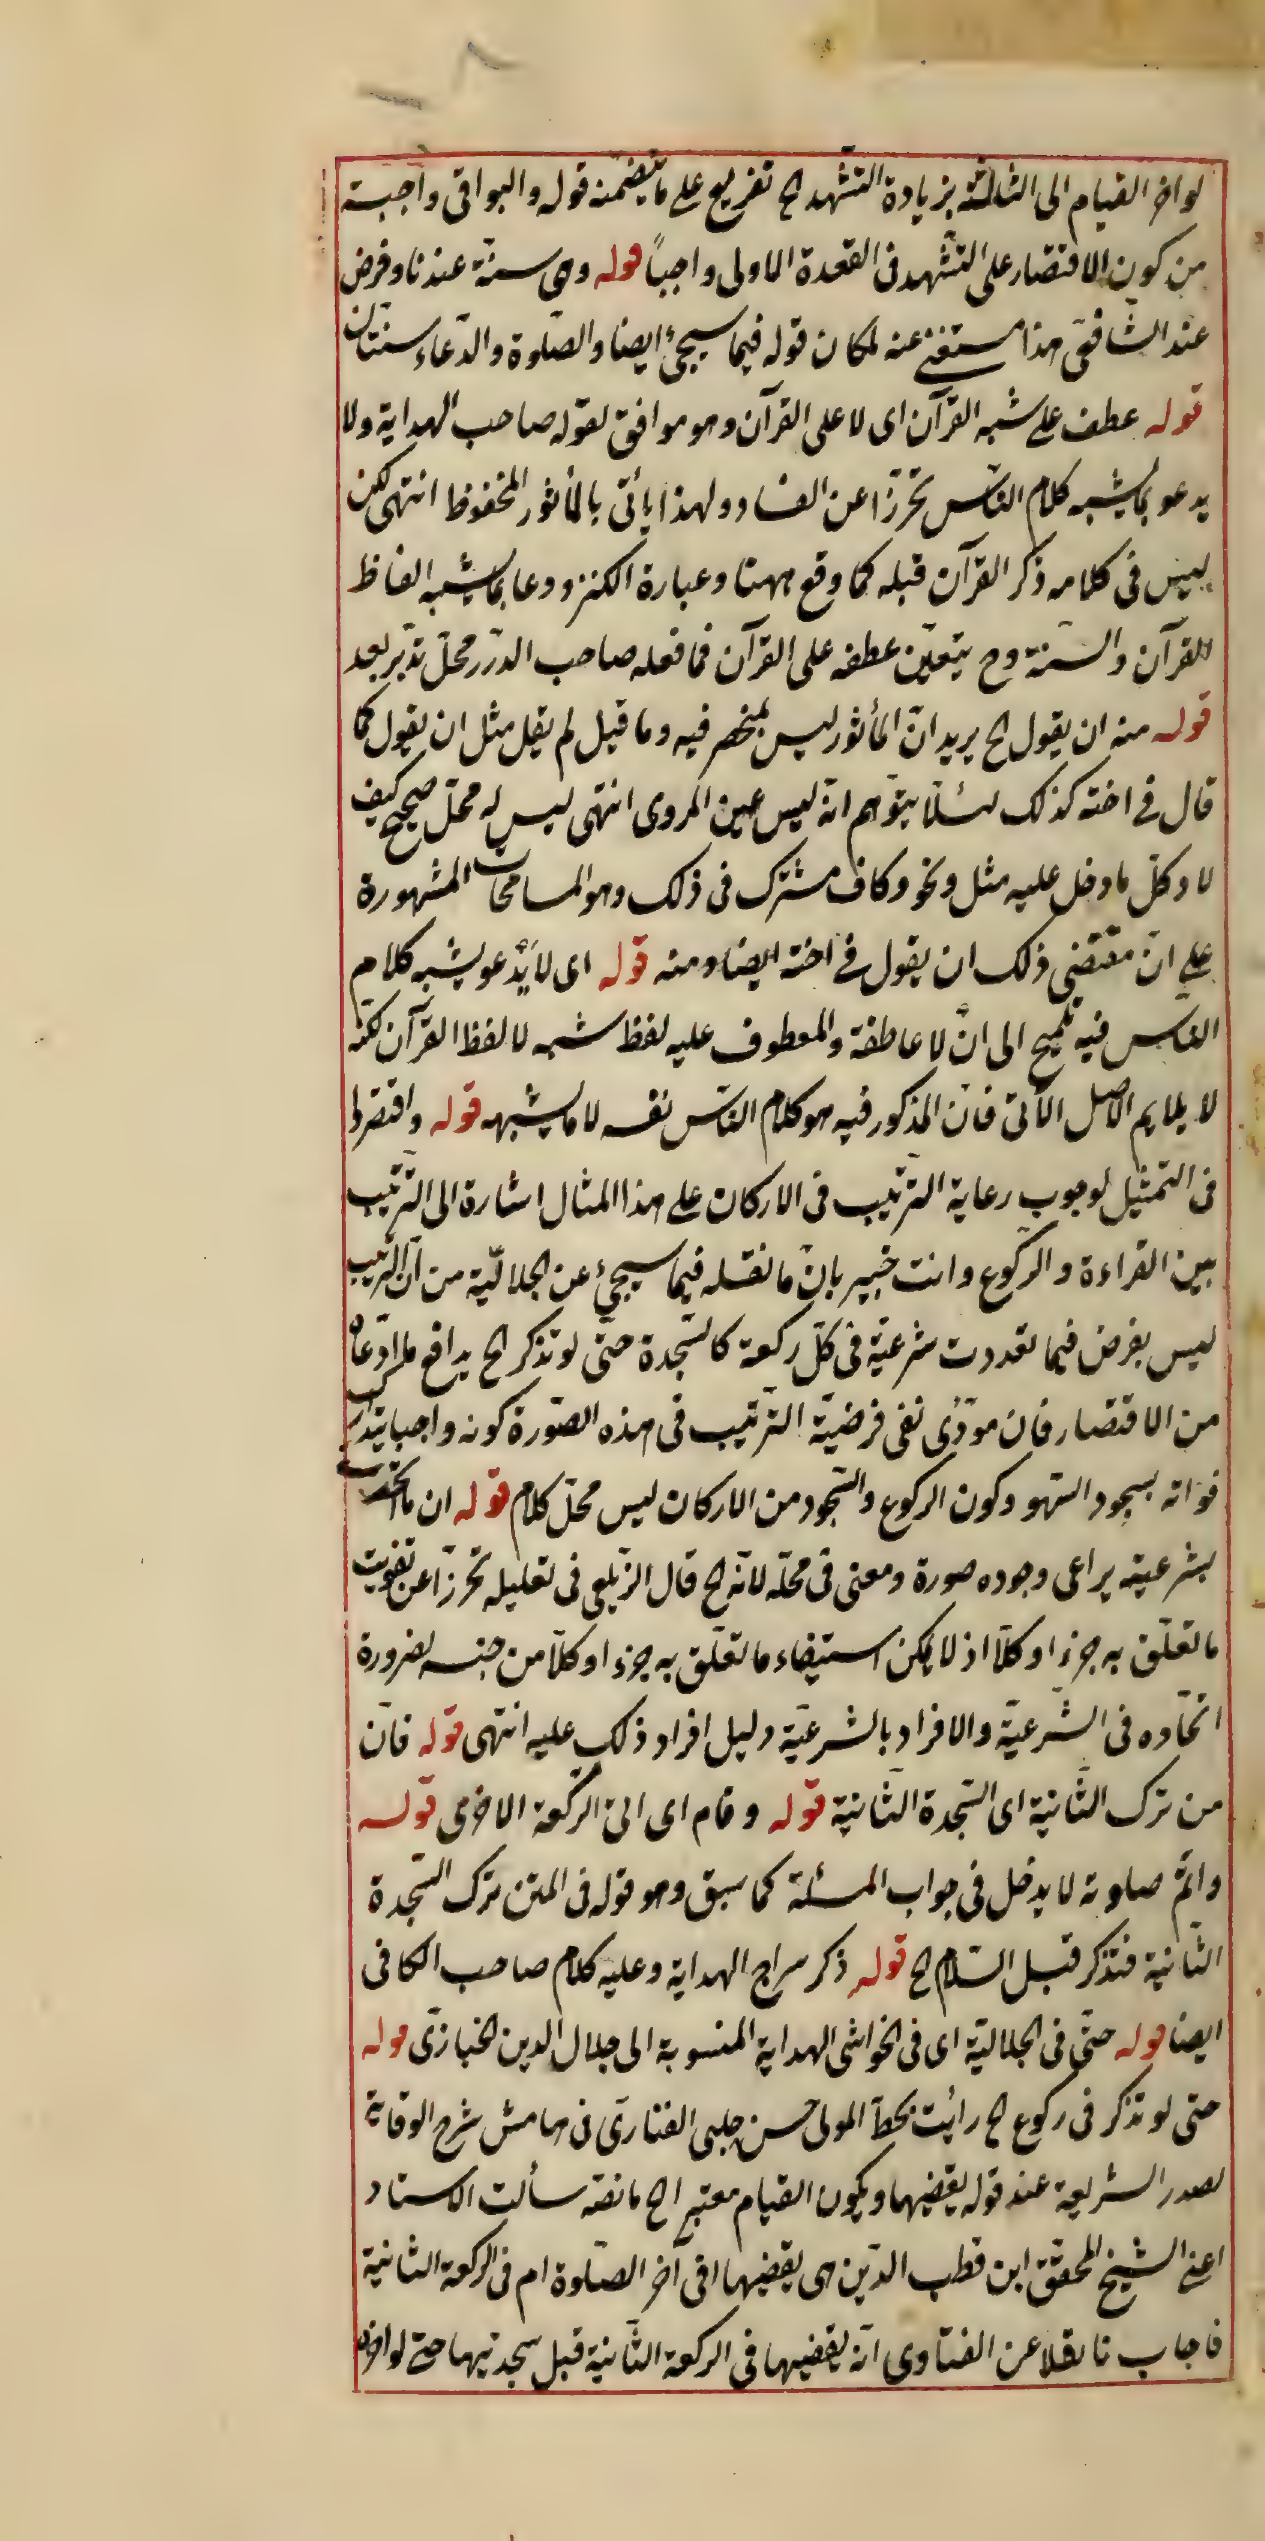 لو اخر القيام الى الثالثة بزيادة التشهد الخ تفريع على ما يتضمنه قوله والبواقى واجبة
من كون الاقتصار على التشهد فى القعدة الاولى واجبًا قوله وهى سنة عندنا وفرض
عند الشافعى هذا مستغنى عنه لمكان قوله فيما سيجئ ايضا والصلوة والدعاء سنتان
قوله عطف على شبه القرآن اى لا على القرآن وهو موافق لقول صاحب الهداية ولا
يدعو بما يشبه كلام الناس تحرزا عن الفساد ولهذا يأتى بالمأثور المحفوظ انتهى لكن
ليس فى كلامه ذكر القرآن قبله كما وقع ههنا وعبارة الكنز ودعا بما يشبه الفاظ
القرآن والسنة وح يتعين عطفه على القرآن فما فعله صاحب الدرر محل تدبر بعد
قوله منه ان يقول الخ يريد انّ المأثور ليس بمنحصر فيه وما قيل لم يقل مثل ان يقول كما
قال فى اخته كذلك لئلا يتوهم انه ليس عين المروى انتهى ليس له محل صحيح كيف
لا وكل ما دخل عليه مثل ونحو وكاف مشترك فى ذلك وهو المسامحات المشهورة
على انّ مقتضى ذلك ان يقول فى اخته ايضا ومنه قوله اى لا يدعو بشبه كلام
الناس فيه تلميح الى انّ لا عاطفة والمعطوف عليه لفظ شبه لا لفظ القرآن لكنه
لا يلايم الاصل الآتى فانّ المذكور فيه هو كلام الناس نفسه لا ما يشبهه قوله واقتصر
فى التمثيل لوجوب رعاية الترتيب فى الاركان على هذا المثال اشارة الى الترتيب
بين القراءة والركوع وانت خبير بانّ ما نقله فيما سيجئ عن الجلالية من انّ الترتيب
ليس بفرض فيما تعددت شرعيته فى كل ركعة كالسجدة حتى لو تذكر الخ يدافع ما ادعاه
من الاقتصار فان مؤدى نفى فرضية الترتيب فى هذه الصورة كونه واجبا يتدارك
فواته بسجود السهو وكون الركوع والسجود من الاركان ليس محل كلام قوله ان ما اتحدت
شرعيته يراعى وجوده صورة ومعنى فى محله لانه الخ قال الزيلعى فى تعليله تحرزا عن تفويت
ما تعلق به جزءا او كلا اذ لا يمكن استيفاء ما تعلق به جزءا او كلا من جنسه لضرورة
اتحاده فى الشرعية والافراد بالشرعية دليل افراد ذلك عليه انتهى قوله فانّ
من ترك الثانية اى السجدة الثانية قوله وقام اى الى الركعة الاخرى قوله
واتمّ صلوته لا يدخل فى جواب المسئلة كما سبق وهو قوله فى المتن ترك السجدة
الثانية فتذكر قبل السلام الخ قوله ذكر سراج الهداية وعليه كلام صاحب الكافى
ايضا قوله حتى فى الجلالية اى فى الحواشى الهداية المنسوبة الى جلال الدين الخبازى قوله
حتى لو تذكر فى ركوع الخ رأيت بخط المولى حسن چلبى الفنارى فى هامش شرح الوقاية
لصدر الشريعة عند قوله يقضيها ويكون القيام معتبرا الخ ما نصه سألت الاستاد
اعنى الشيخ المحقق ابن قطب الدين هى يقضيها افى آخر الصلوة ام فى الركعة الثانية
فاجاب ناقلا عن الفتاوى انه يقضيها فى الركعة الثانية قبل سجدتيها حتى لو اخره